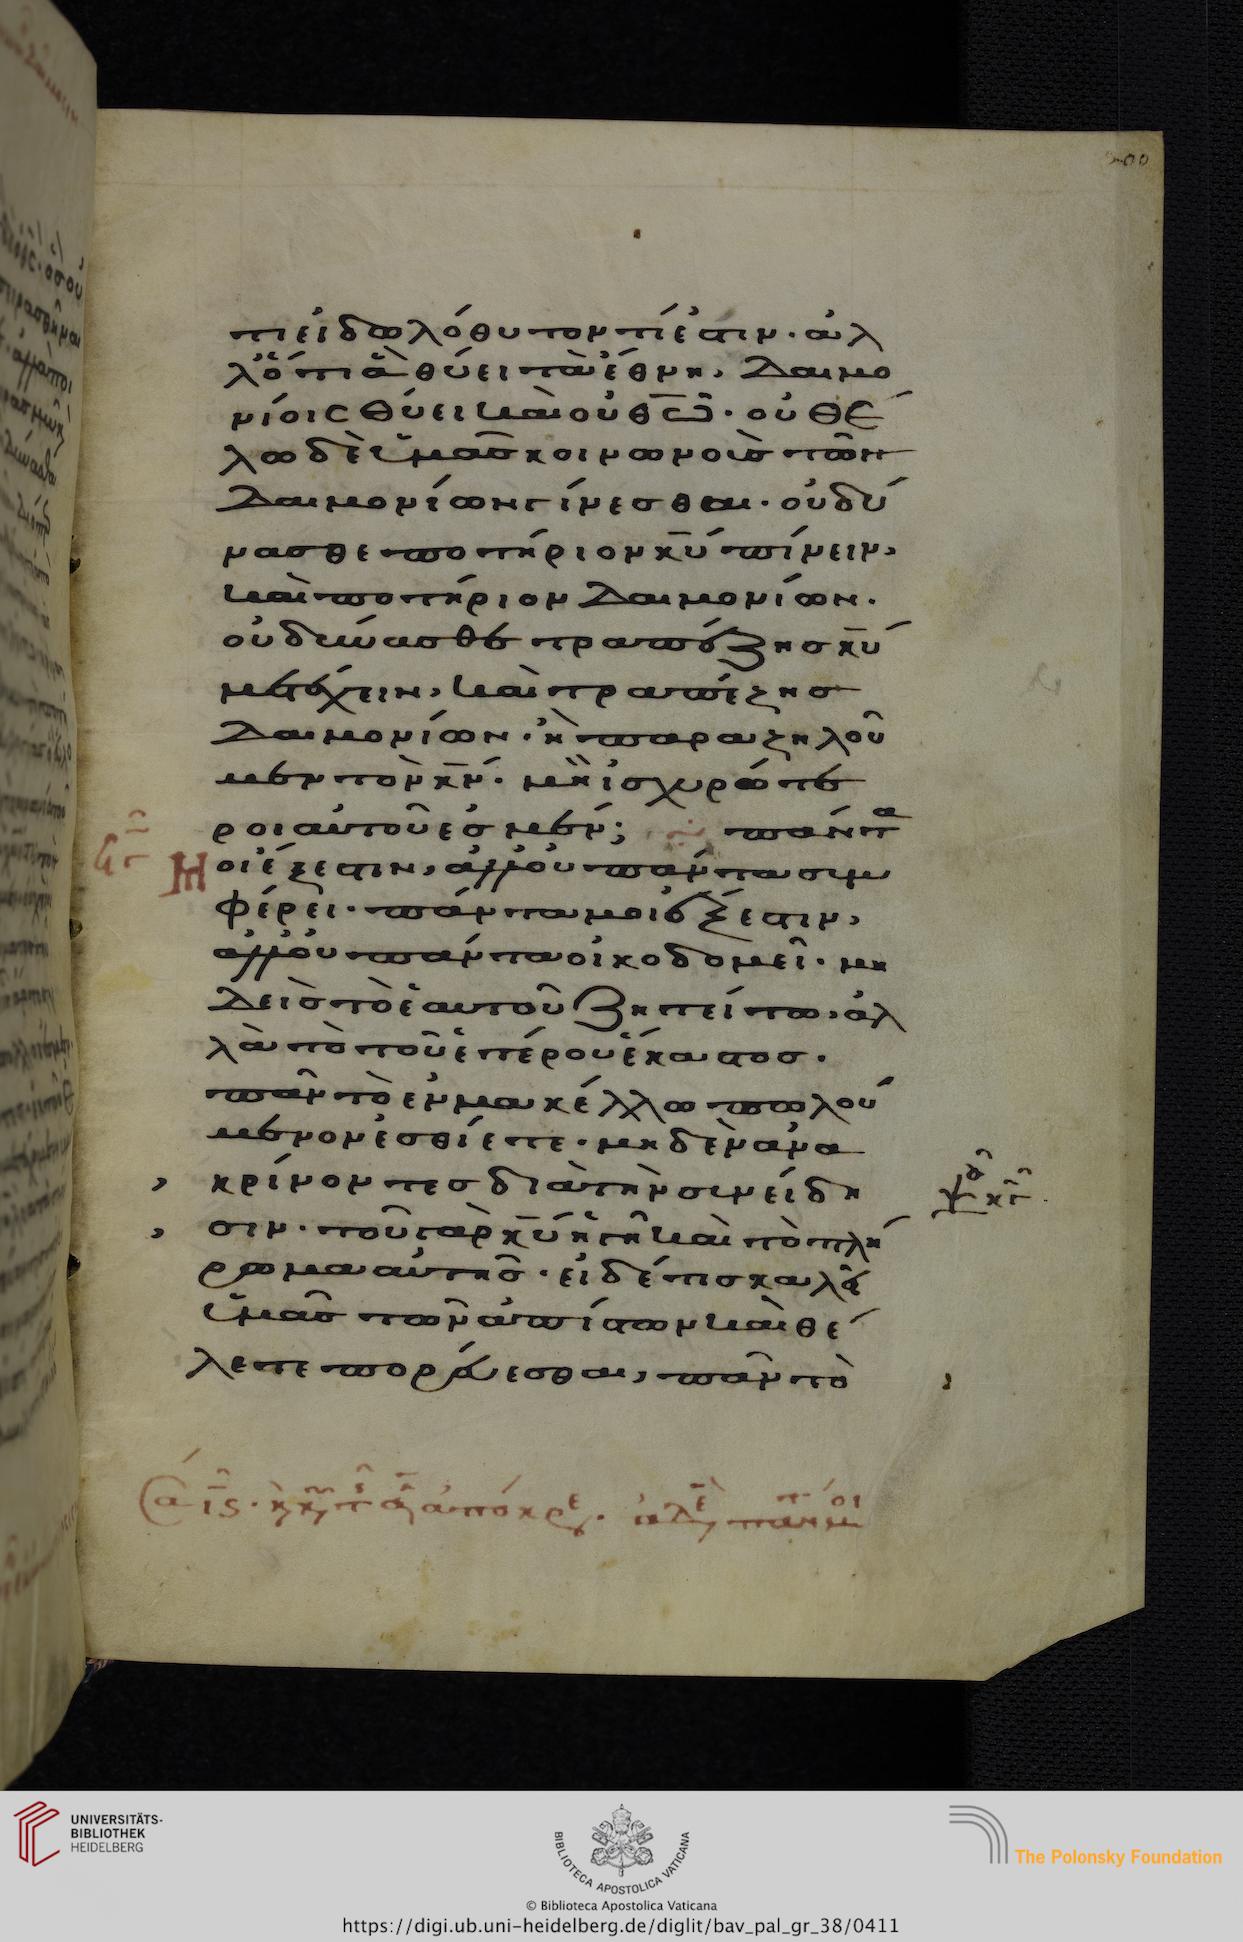 200
τι εἰδωλόθυτον τί ἐστιν· ἀλ
λ' ὅτι ἃ θύει τὰ ἔθνη, δαιμο
νίοις θύει καὶ οὐ θ̅ω̅· οὐ θέ
λω δὲ ὑμᾶς κοινωνοὺς τῶν
δαιμονίων γίνεσθαι· οὐ δύ
νασθε ποτήριον κ̅υ̅ πίνειν,
καὶ ποτήριον δαιμονίων.
οὐ δύνασθε τραπέζης κ̅υ̅
μετέχειν, καὶ τραπέζης
δαιμονίων· ἢ παραζηλοῦ
μεν τὸν κ̅ν̅· μὴ ἰσχυρότε
ροι αὐτοῦ ἐσμέν; πάντα
μοι ἔξεστιν, ἀλλ' οὐ πάντα συμ
φέρει· πάντα μοι ἔξεστιν,
ἀλλ' οὐ πάντα οἰκοδομεῖ· μη
δεὶς τὸ ἑαυτοῦ ζητείτω, ἀλ
λὰ τὸ τοῦ ἑτέρου ἕκαστος.
πᾶν τὸ ἐν μακέλλω πωλού
μενον ἐσθίετε· μηδὲν ἀνα
κρίνοντες διὰ τὴν συνείδη
σιν· τοῦ γὰρ κ̅υ̅ ἡ γῆ καὶ τὸ πλή
ρωμα αὐτῆς· εἰ δέ τις καλεῖ
ὑμᾶς τῶν ἀπίστων καὶ θέ
λετε πορεύεσθαι, πᾶν τὸ
UNIVERSITÄTS-
BIBLIOTHEK
HEIDELBERG
BIBLIOTECA APOSTOLICA VATICANA
The Polonsky Foundation
© Biblioteca Apostolica Vaticana
https://digi.ub.uni-heidelberg.de/diglit/bav_pal_gr_38/0411